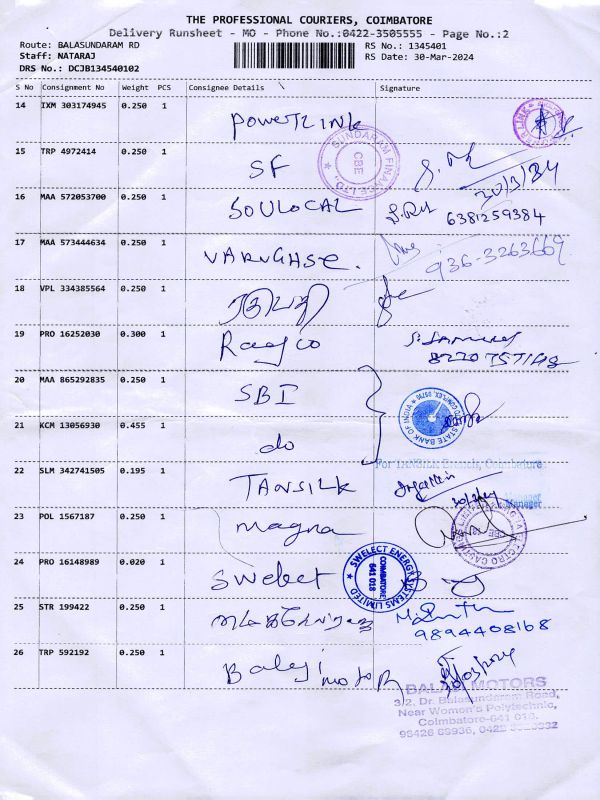 THE PROFESSIONAL COURIERS, COIMBATORE
Delivery Runsheet - MO - Phone No.:0422-3505555 - Page No.:2
Route: BALASUNDARAM RD RS No.: 1345401
Staff: NATARAJ RS Date: 30-Mar-2024
DRS No.: DCJB134540102
S No Consignment No Weight PCS Consignee Details Signature
14 IXM 303174945 0.250 1 Powerlink
15 TRP 4972414 0.250 1 SF
SUNDARAM FINANCE LTD. CBE
30/3/24
16 MAA 572053700 0.250 1 SOULOCAL 6381259384
17 MAA 573444634 0.250 1 VARUGHSE. 936-3263669
18 VPL 334385564 0.250 1
19 PRO 16252030 0.300 1
20 MAA 865292835 0.250 1 SBI
STATE BANK OF INDIA
21 KCM 13056930 0.455 1 do
For TANSILK Branch, Coimbatore
22 SLM 342741505 0.195 1 TANSILK
Manager
23 POL 1567187 0.250 1 Magna
24 PRO 16148989 0.020 1 Swelect
SWELECT ENERGY SYSTEMS LIMITED COIMBATORE 641 018
25 STR 199422 0.250 1
9894408168
26 TRP 592192 0.250 1 Balaji motor
BALAJI MOTORS
3/2, Dr. Balasundaram Road,
Near Women's Polytechnic,
Coimbatore-641 018.